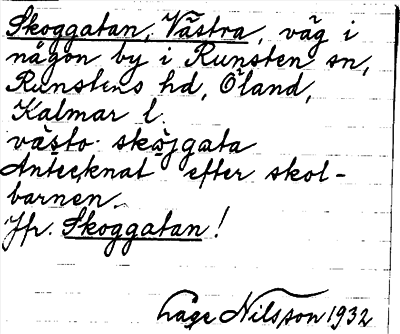 Skoggatan, Västra, väg i
någon by i Runsten sn,
Runstens hd, Öland,
Kalmar l.
västo skòjgata
Antecknat efter skol-
barnen.
Jfr. Skoggatan!
Lage Nilsson 1932